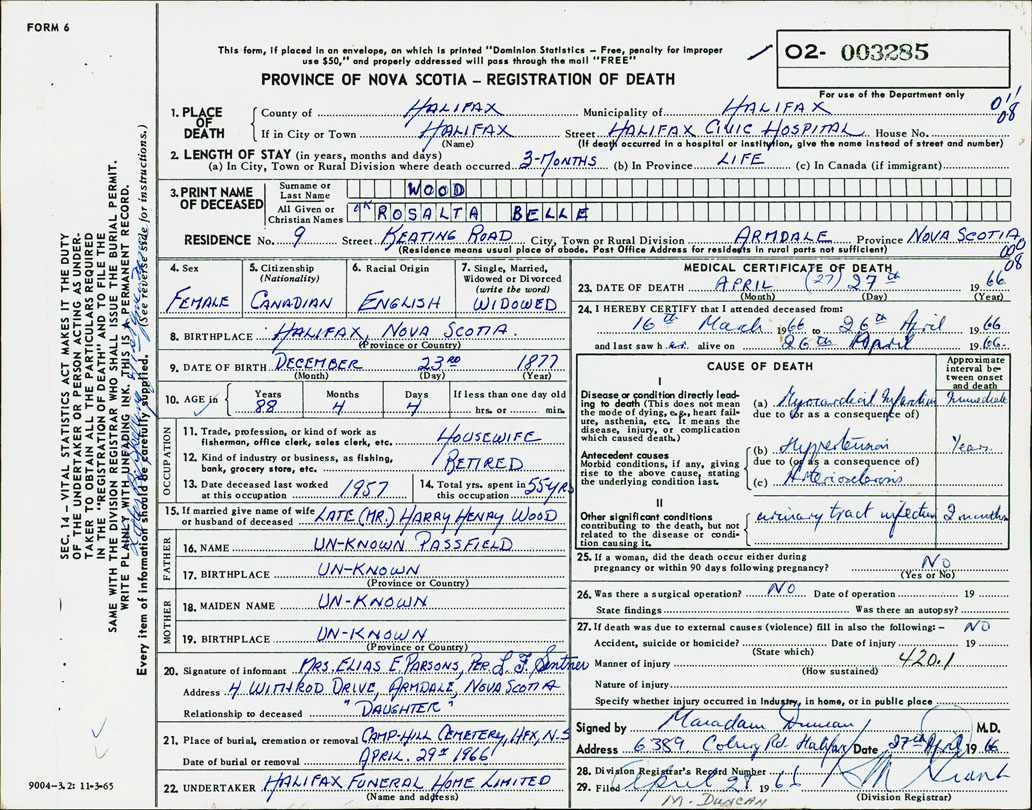 FORM 6
This form, if placed in an envelope, on which is printed "Dominion Statistics – Free, penalty for improper
use $50," and properly addressed will pass through the mail "FREE"
PROVINCE OF NOVA SCOTIA – REGISTRATION OF DEATH
O2- 003285
For use of the Department only
1. PLACE OF DEATH
County of HALIFAX Municipality of HALIFAX
If in City or Town HALIFAX Street HALIFAX CIVIC HOSPITAL House No.
(Name) (If death occurred in a hospital or institution, give the name instead of street and number)
2. LENGTH OF STAY (in years, months and days)
(a) In City, Town or Rural Division where death occurred 3-MONTHS (b) In Province LIFE (c) In Canada (if immigrant)
3. PRINT NAME OF DECEASED
Surname or Last Name WOOD
All Given or Christian Names ROSALTA BELLE
RESIDENCE No. 9 Street KEATING ROAD City, Town or Rural Division ARMDALE Province NOVA SCOTIA
(Residence means usual place of abode. Post Office Address for residents in rural parts not sufficient)
4. Sex
FEMALE
5. Citizenship
(Nationality)
CANADIAN
6. Racial Origin
ENGLISH
7. Single, Married,
Widowed or Divorced
(write the word)
WIDOWED
8. BIRTHPLACE HALIFAX, NOVA SCOTIA.
(Province or Country)
9. DATE OF BIRTH DECEMBER 23RD 1877
(Month) (Day) (Year)
10. AGE in Years Months Days If less than one day old
88 4 4 hrs. or min.
OCCUPATION
11. Trade, profession, or kind of work as
fisherman, office clerk, sales clerk, etc. HOUSEWIFE
12. Kind of industry or business, as fishing,
bank, grocery store, etc. RETIRED
13. Date deceased last worked
at this occupation 1957
14. Total yrs. spent in
this occupation 55 YRS
15. If married give name of wife
or husband of deceased LATE (MR.) HARRY HENRY WOOD
FATHER
16. NAME UN-KNOWN PASSFIELD
17. BIRTHPLACE UN-KNOWN
(Province or Country)
MOTHER
18. MAIDEN NAME UN-KNOWN
19. BIRTHPLACE UN-KNOWN
(Province or Country)
20. Signature of informant MRS. ELIAS E. PARSONS, PER. L. F. Sentner
Address 4 WINTROD DRIVE, ARMDALE, NOVA SCOTIA
Relationship to deceased "DAUGHTER"
21. Place of burial, cremation or removal CAMP-HILL CEMETERY, HFX, N.S
Date of burial or removal APRIL. 29th 1966
22. UNDERTAKER HALIFAX FUNERAL HOME LIMITED
(Name and address)
MEDICAL CERTIFICATE OF DEATH
23. DATE OF DEATH APRIL (27) 27th 1966
(Month) (Day) (Year)
24. I HEREBY CERTIFY that I attended deceased from
16th March 1966 to 26th April 1966
and last saw her alive on 26th April 1966.
CAUSE OF DEATH
Approximate
interval be-
tween onset
and death
I
Disease or condition directly lead-
ing to death (This does not mean
the mode of dying, e.g., heart fail-
ure, asthenia, etc. It means the
disease, injury, or complication
which caused death.)
(a) Myocardial Infarction Immediate
due to (or as a consequence of)
Antecedent causes
Morbid conditions, if any, giving
rise to the above cause, stating
the underlying condition last.
(b) Hypertension Years
due to (or as a consequence of)
(c) Arteriosclerosis
II
Other significant conditions
contributing to the death, but not
related to the disease or condi-
tion causing it.
urinary tract infection 2 months
25. If a woman, did the death occur either during
pregnancy or within 90 days following pregnancy? No
(Yes or No)
26. Was there a surgical operation? NO Date of operation 19
State findings Was there an autopsy?
27. If death was due to external causes (violence) fill in also the following:– NO
Accident, suicide or homicide? Date of injury 19
(State which)
Manner of injury 420.1
(How sustained)
Nature of injury
Specify whether injury occurred in Industry, in home, or in public place
Signed by Duncan M.D.
Address 6389 Coburg Rd. Halifax Date 27th April 1966
28. Division Registrar's Record Number
29. Filed April 28 1966
(Division Registrar)
M. DUNCAN
SEC. 14 – VITAL STATISTICS ACT MAKES IT THE DUTY
OF THE UNDERTAKER OR PERSON ACTING AS UNDER-
TAKER TO OBTAIN ALL THE PARTICULARS REQUIRED
IN THE "REGISTRATION OF DEATH" AND TO FILE THE
SAME WITH THE DIVISION REGISTRAR WHO SHALL ISSUE THE BURIAL PERMIT.
WRITE PLAINLY WITH UNFADING INK. THIS IS A PERMANENT RECORD.
Every item of information should be carefully supplied. (See reverse side for instructions.)
9004-3.2: 11-3-65